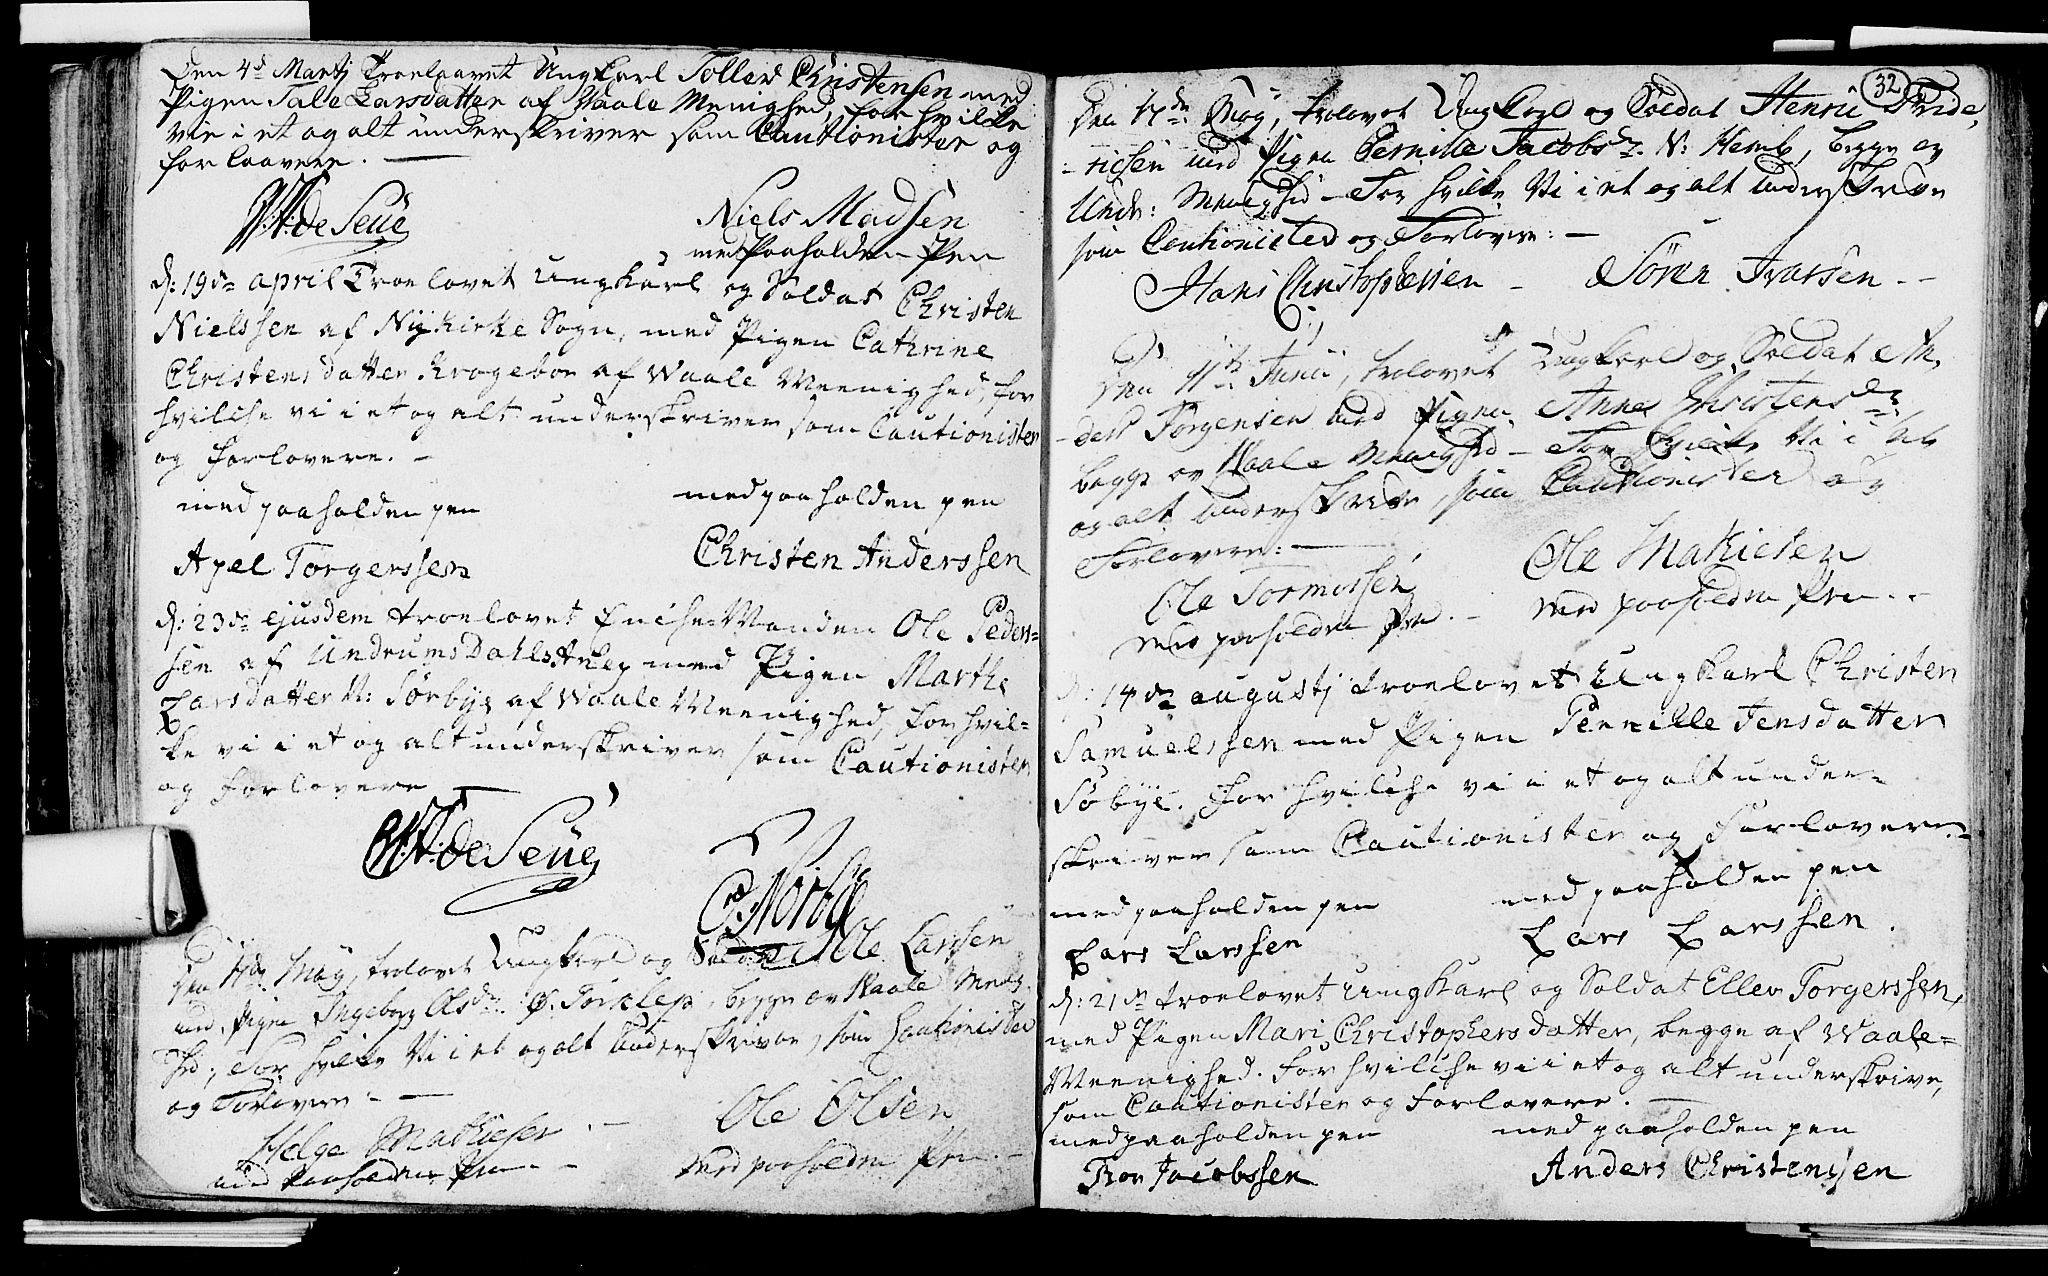 Den 4d Martj Troelaavet Ungkarl Tollev Christensen med
Pigen Tale Larsdatter af Vaale Menighed, for hvilke
vie i et og alt underskriver som Cautionister og
forlaavere. —
de Seüe
Niels Madsen
med Paaholden Pen
d: 19de april Troelovet Ungkarl og Soldat Christen
Nielssen af Nykirke Sogn, med Pigen Cathrine
Christensdatter Krogeboe af Waale Meenighed, for
hvilche vi i et og alt underskriver som Cautionister
og forlovere. —
med paaholden pen
med paaholden pen
Apel Torgerssen
Christen Anderssen
d: 23de ejusdem troelovet Enche-Manden Ole Peders=
sen af Undrumsdahls Anlex med Pigen Marthe
Larsdatter N: Sørbye af Waale Meenighed, for hvil=
ke vi i et og alt underskriver som Cautionister
og forlovere —
de Seüe
C. Nørbye
Den May, trolovet Ungkarl og Soldat Ole Larssen
med Pigen Ingeborg Olsdr: Ø. Torklep, begge av Waale Menig
hed, For hvilke Vi i et og alt Underskrive, som Cautionister
og Forlovere — —
Helge Mathiesen
med Paaholden Pen —
Ole Olsen
med paaholden Pen —
32
Den 17de May, trolovet Ungkarl og Soldat Henric Fride,
-ricsen med Pigen Pernille Jacobsdr. N: Hemb, begge av
Undr: Menighed — For hvilke Vi i et og alt Underskrive
som Cautionister og Forlovere: —
Hans Christophersen —
Søren Ivarsen —
Den 11te Junii, trolovet Ungkarl og Soldat An,
-ders Jørgensen med Pigen Anne Christensdr
begge av Waale Menighed — For hvilke Vi i et
og alt Underskrive, som Cautionister og
Forlovere: —
Ole Tormorsen
med paaholden Pen —
Ole Mathiesen
med paaholden Pen —
d: 14de augustj troelovet Ungkarl Christen
Samuelssen med Pigen Pernille Jensdatter
Søbye. for hvilche vi i et og alt under=
skriver som Cautionister og Forlovere. —
med paaholden pen
med paaholden pen
Lars Larssen
Lars Larssen.
d: 21de troelovet Ungkarl og Soldat Ellev Torgerssen,
med Pigen Mari Christophersdatter, begge af Waale=
Meenighed. for hvilche vi i et og alt underskrive,
som Cautionister og forlovere. —
med paaholden pen
med paaholden pen
Thor Jacobssen
Anders Christenssen